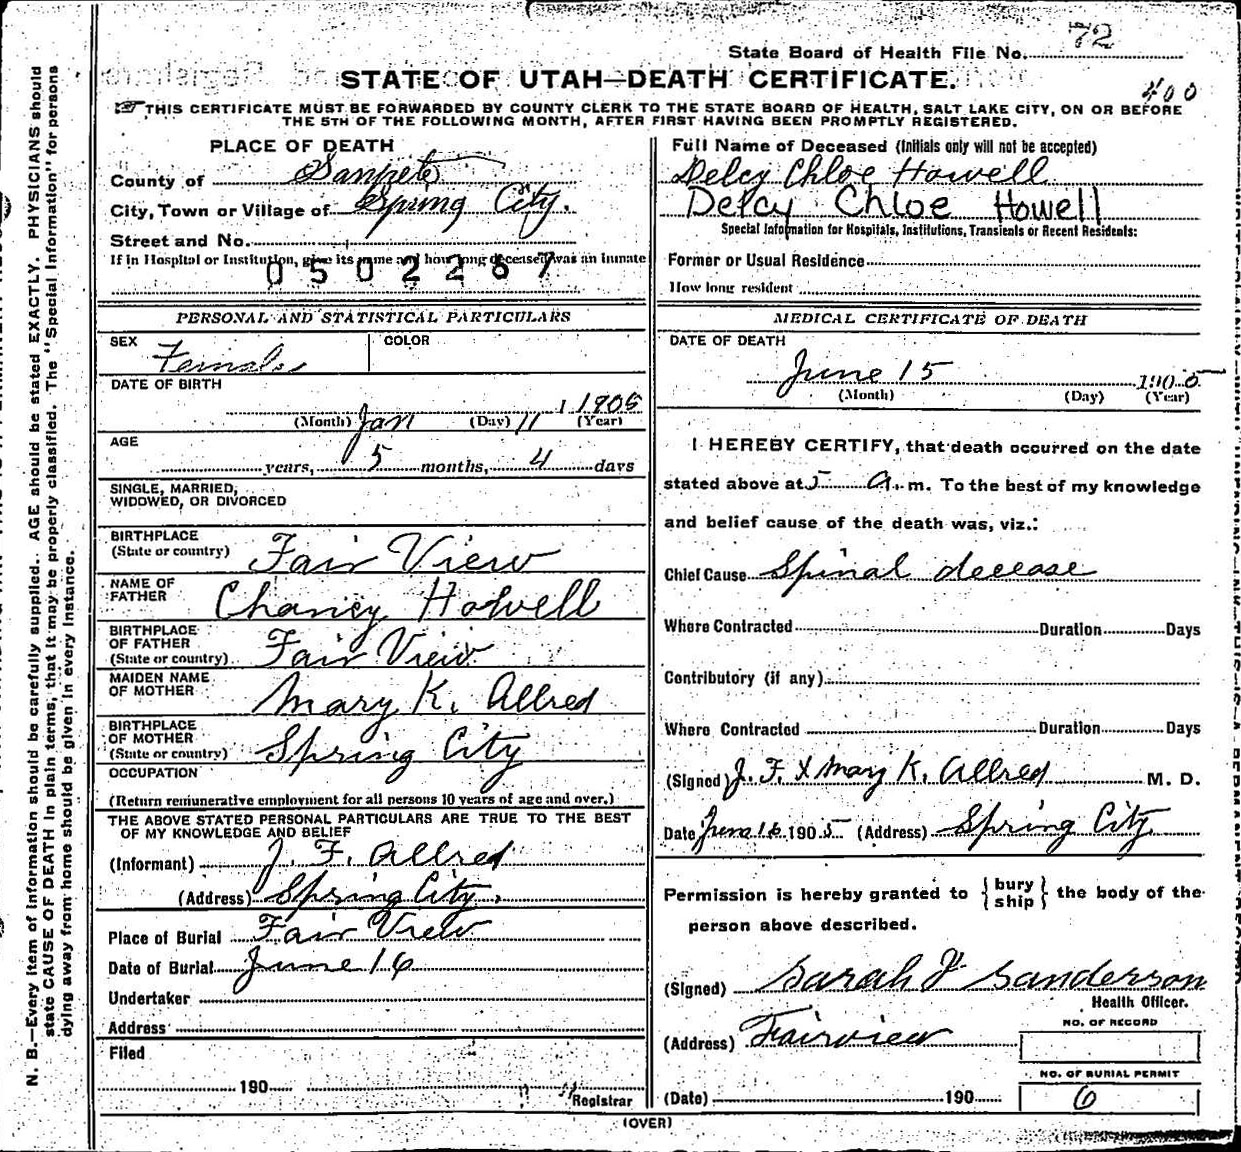 State Board of Health File No. 72
STATE OF UTAH—DEATH CERTIFICATE.
400
THIS CERTIFICATE MUST BE FORWARDED BY COUNTY CLERK TO THE STATE BOARD OF HEALTH, SALT LAKE CITY, ON OR BEFORE
THE 5TH OF THE FOLLOWING MONTH, AFTER FIRST HAVING BEEN PROMPTLY REGISTERED.
PLACE OF DEATH
County of Sanpete
City, Town or Village of Spring City.
Street and No.
If in Hospital or Institution, give its name and how long deceased was an inmate
0502267
PERSONAL AND STATISTICAL PARTICULARS
SEX Female COLOR
DATE OF BIRTH
(Month) Jan (Day) 11 (Year) 1905
AGE
years, 5 months, 4 days
SINGLE, MARRIED,
WIDOWED, OR DIVORCED
BIRTHPLACE
(State or country) Fair View
NAME OF
FATHER Chancy Howell
BIRTHPLACE
OF FATHER
(State or country) Fair View
MAIDEN NAME
OF MOTHER Mary K. Allred
BIRTHPLACE
OF MOTHER
(State or country) Spring City
OCCUPATION
(Return remunerative employment for all persons 10 years of age and over.)
THE ABOVE STATED PERSONAL PARTICULARS ARE TRUE TO THE BEST
OF MY KNOWLEDGE AND BELIEF
(Informant) J. F. Allred
(Address) Spring City.
Place of Burial Fair View
Date of Burial June 16
Undertaker
Address
Filed
190
Registrar
Full Name of Deceased (Initials only will not be accepted)
Delcy Chloe Howell
Delcy Chloe Howell
Special Information for Hospitals, Institutions, Transients or Recent Residents:
Former or Usual Residence
How long resident
MEDICAL CERTIFICATE OF DEATH
DATE OF DEATH
June 15 190
(Month) (Day) (Year)
I HEREBY CERTIFY, that death occurred on the date
stated above at 5 A. m. To the best of my knowledge
and belief cause of the death was, viz.:
Chief Cause Spinal decease
Where Contracted Duration Days
Contributory (if any)
Where Contracted Duration Days
(Signed) J. F. & Mary K. Allred M. D.
Date June 16 1905 (Address) Spring City
Permission is hereby granted to {bury ship} the body of the
person above described.
(Signed) Sarah Sanderson
Health Officer.
(Address) Fairview
NO. OF RECORD
NO. OF BURIAL PERMIT
(Date) 190 6
(OVER)
N. B.—Every item of information should be carefully supplied. AGE should be stated EXACTLY. PHYSICIANS should
state CAUSE OF DEATH in plain terms, that it may be properly classified. The "Special Information" for persons
dying away from home should be given in every instance.